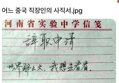 어느 중국 직장인의 사직서.jpg
河南省实验中学信笺
辞职申请
世界那么大，我想去看看。